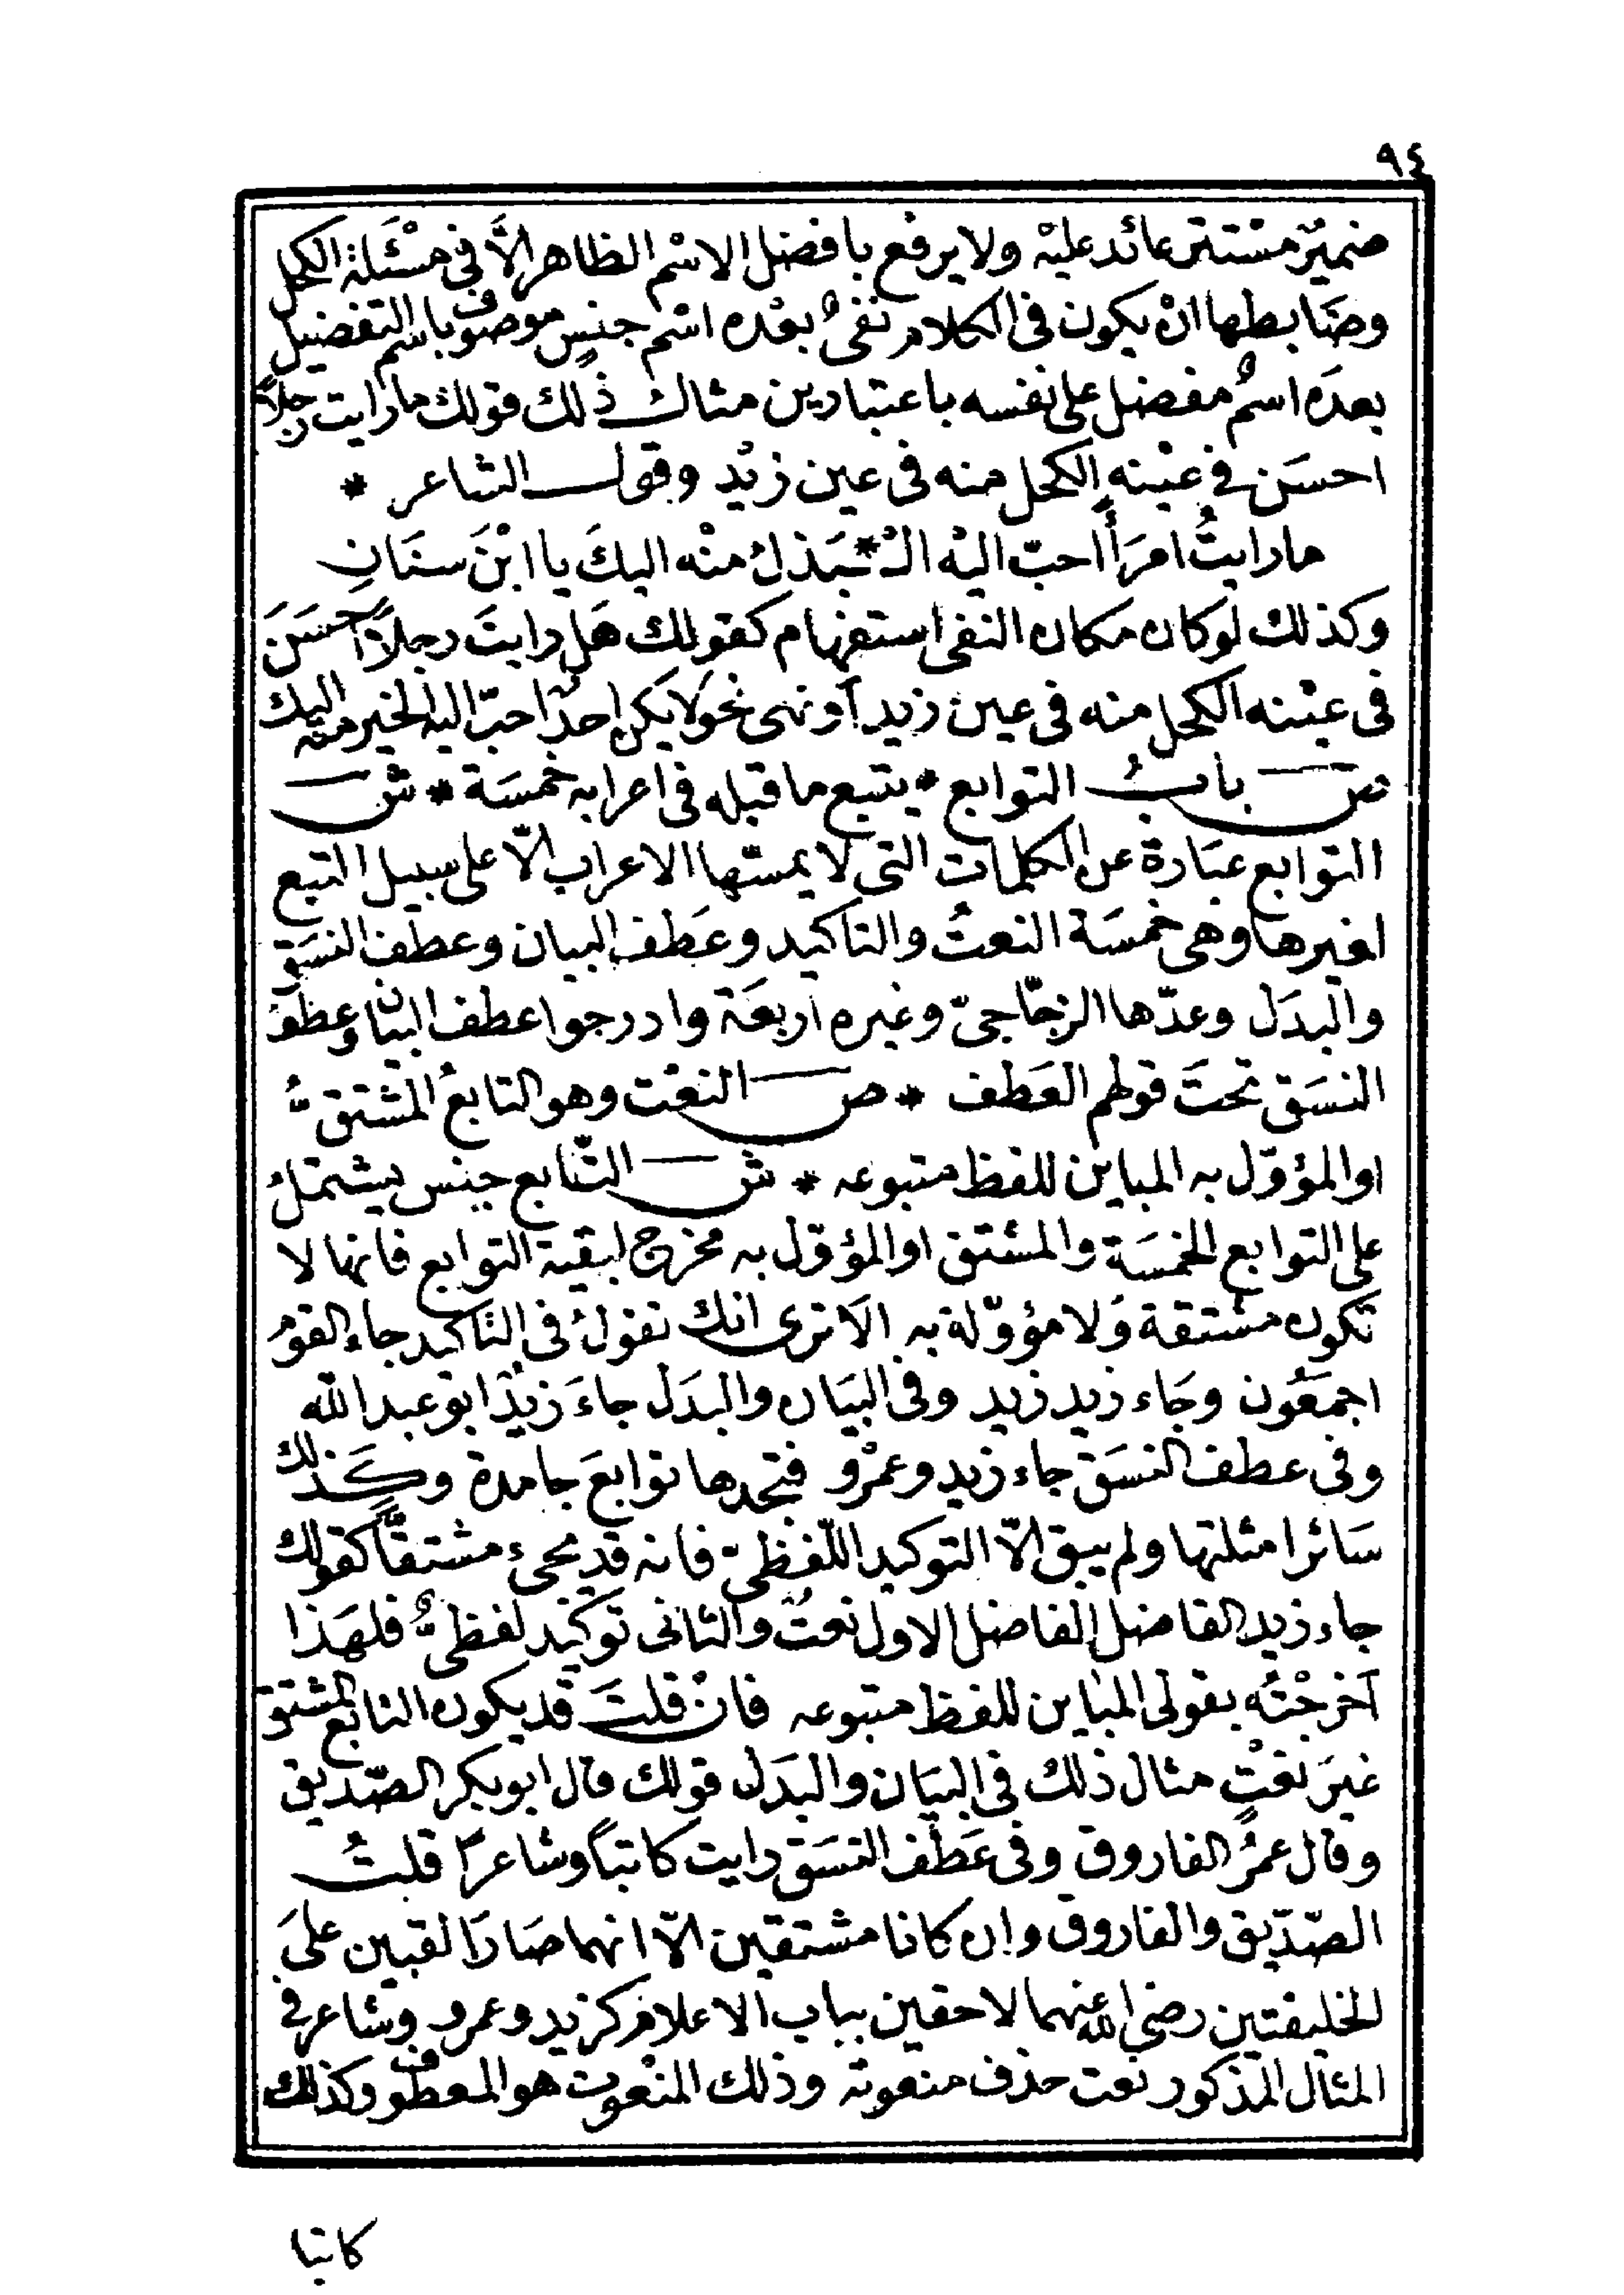 ٩٤
ضميرٌ مستتر عائد عليْه ولا يرفع بافضل الاسْم الظاهر الّا فى مسْئلة الكحل
وضَابطها انْ يكون فى الكلام نفىٌ بعْده اسْم جنسٍ موصوف باسم التفضيل
بعدَه اسمٌ مفضل على نفسه باعتبارين مثال ذٰلك قولك ما رايت رجلاً
احسَن فى عيْنه الكحل منه فى عين زيْد وقول الشاعر *
ما رايتُ امرَأً احبّ اليْه الـ * ـبَذل منْه اليكَ يا ابْنَ سنَانِ
وكذلك لو كان مكان النفى استفهام كقولك هَل رايتَ رجلاً احسَنَ
فى عيْنه الكحل منه فى عين زيد أو نهى نحو لا يكن احدٌ احبّ اليه الخير منه اليك
ص باب التوابع * يتبع ما قبله فى اعرابه خمسَة * ش
التوابع عبَارة عن الكلمات التى لا يمسّها الاعراب الّا على سبيل التبع
لغيرها وهى خمسَة النعتُ والتاكيد وعَطف البيان وعطف النسَق
والبدَل وعدّها الزجّاجىّ وغيره اربعَة وادرجوا عطف البيان وعطف
النسَق تحتَ قولهم العَطف * ص النعْت وهو التابعُ المشتقّ
او المؤوّل به المباين للفظ متبوعه * ش التّابع جنس يشتمل
على التوابع الخمسَة والمشتق او المؤوّل به مخرج لبقية التوابع فانها لا
تكون مشتقة وَلا مؤوّلة به الا ترى انك تقول فى التاكيد جاء القومُ
اجمَعُون وجَاء زيد زيد وفى البيَان والبدَل جاءَ زيْدٌ ابو عبد الله
وفى عطف النسَق جاء زيد وعمْرو فتجدها توابعَ جامدة وكَذلك
سَائر امثلتها ولم يبق الّا التوكيد اللّفظىّ فانه قد يجىء مشتقًّا كقولك
جاء زيد الفاضل الفاضل الاول نعتٌ والثانى توكيد لفظىٌّ فلهَذا
أخرجْتُه بقولى المبَاين للفظ متبوعه فانْ قلتَ قد يكون التابع المشتق
غيرَ نعْتٍ مثال ذلك فى البيَان والبدَل قولك قال ابو بكر الصّديق
وقال عمرُ الفاروق وفى عَطف النسَق رايت كاتباً وشاعرًا قلتُ
الصّدّيق والفاروق وان كانا مشتقين الّا انهما صَارَا لقبين علَى
الخليفتين رضى الله عنهما لاحقين بباب الاعلام كزيد وعمرو وشاعر فى
المثال المذكور نعت حذف منعوته وذلك المنْعوت هو المعطوف وكذلك
كاتبا